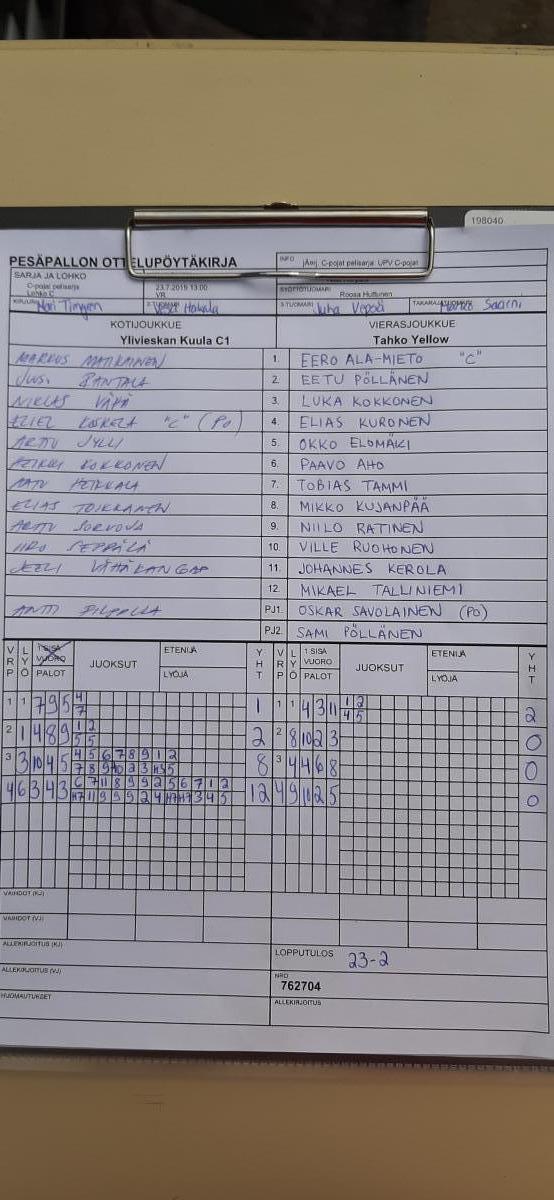 198040
PESÄPALLON OTTELUPÖYTÄKIRJA
INFO
C-pojat pelisarja: UPV C-pojat
SARJA JA LOHKO
C-pojat pelisarja
Lohko C
23.7.2019 13.00
VR
SYÖTTÖTUOMARI
Roosa Huttunen
KIRJURI
2-TUOMARI
Hakala
3-TUOMARI Juha Vepsä
Saarni
KOTIJOUKKUE
Ylivieskan Kuula C1
VIERASJOUKKUE
Tahko Yellow
MARKUS MATIKAINEN 1. EERO ALA-MIETO "C"
RANTALA 2. EETU PÖLLÄNEN
NIKLAS VÄHÄ 3. LUKA KOKKONEN
ELIEL KOSKELA "C" (PO) 4. ELIAS KURONEN
ARTTU JYLLI 5. OKKO ELOMÄKI
HEIKKI KOKKONEN 6. PAAVO AHO
HEIKKALA 7. TOBIAS TAMMI
ELIAS TOIKKANEN 8. MIKKO KUJANPÄÄ
ARTTU SORVOJA 9. NIILO RATINEN
IIRO SEPPÄLÄ 10. VILLE RUOHONEN
VÄHÄKANGAS 11. JOHANNES KEROLA
12. MIKAEL TALLINIEMI
ANTTI PJ1. OSKAR SAVOLAINEN (PO)
PJ2. SAMI PÖLLÄNEN
VRP LYÖ 1 SISÄ VUORO PALOT JUOKSUT ETENIJÄ LYÖJÄ YHT VRP LYÖ 1 SISÄ VUORO PALOT JUOKSUT ETENIJÄ LYÖJÄ YHT
1 1 7 9 5 4 1 1 1 4 3 11 1 2 2
7 4 5
2 1 4 8 9 1 2 2 2 8 10 2 3 0
5 5
3 3 10 4 5 4 5 6 7 8 9 1 2 8 3 4 4 6 8 0
4 6 3 4 3 6 7 11 8 9 9 2 5 6 7 1 2 12 4 9 10 2 5 0
VAIHDOT (KJ)
VAIHDOT (VJ)
ALLEKIRJOITUS (KJ)
LOPPUTULOS 23-2
ALLEKIRJOITUS (VJ)
NRO
762704
HUOMAUTUKSET
ALLEKIRJOITUS